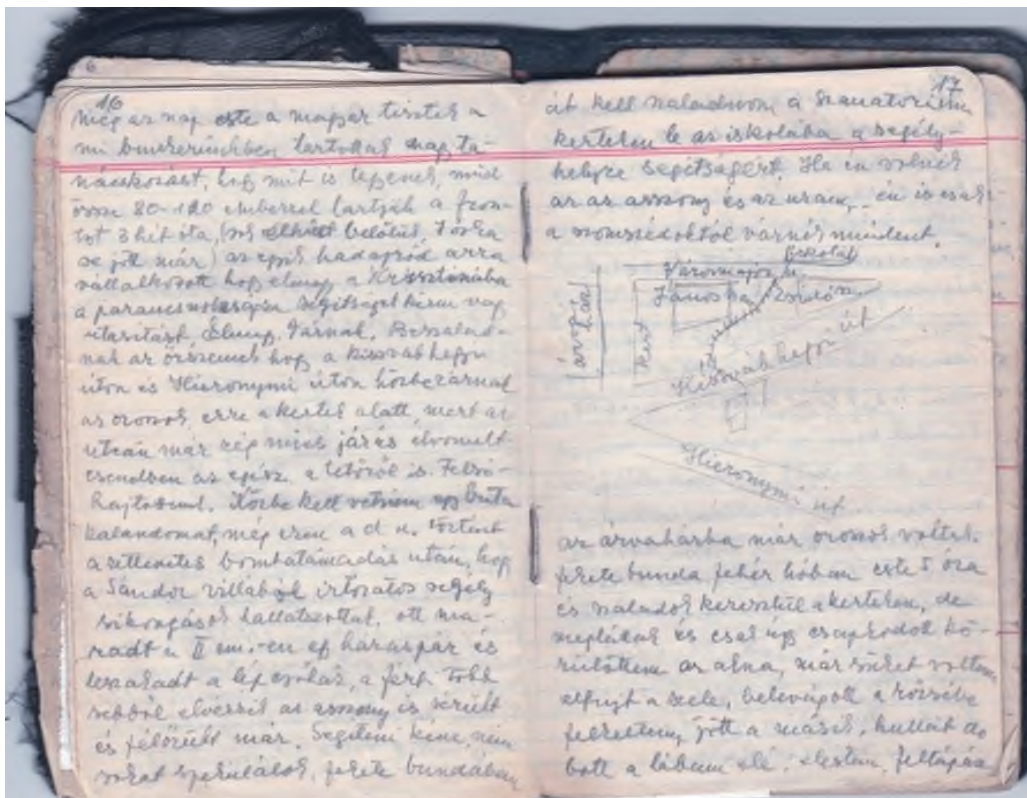 16
Még az nap este a magyar tisztek a
mi bunkerünkben tartottak nagy ta-
nácskozást, hogy mit is tegyenek, mind
össze 80-120 emberrel tartják a fron-
tot 3 hét óta, belőlük
se jött már) az egyik hadapród arra
vállalkozott hogy elmegy a Krisztinába
a parancsnokságra segítséget kérni vagy
utasítást, Elmegy. Várnak. Beszalad-
nak az őrszemek hogy a kissvábhegyi
úton és Hieronymi úton közbezárnak
az oroszok, erre a kertek alatt, mert az
utcán már rég nincs járás elvonult
csendben az egész a tetőről is. Felső-
Közbe kell vetnem egy
kalandomat, még ezen a d. u. történt
a rettenetes bombatámadás után, hogy
a Sándor villából irtózatos segély
sikongások hallatszottak, ott ma-
radt a II em.-en egy házaspár és
leszakadt a lépcsőház, a férfi több
sebből elvérzik az asszony is sérült
és félőrült már. Segíteni kéne, nem
sokat spekulálok, fekete bundában
17
át kell szaladnom a Szanatorium
kerteken le az iskolába a segély-
helyre segítségért. Ha én volnék
az az asszony és az uram, én is csak
a szomszédoktól várnék mindent.
iskola
Városmajor u.
János Szan.
árvaház
kert
Kissvábhegyi út
Hieronymi út
az árvaházba már oroszok voltak.
fekete bunda fehér hóban este 5 óra
és szaladok keresztül a kerteken, de
megláttak és csak úgy csapkodott kö-
rülöttem az akna, már süket voltam
elfujt a szele, belevágott a rőzsébe
felkeltem, jött a másik, hullát do
bott a lábam elé. elestem, feltápász